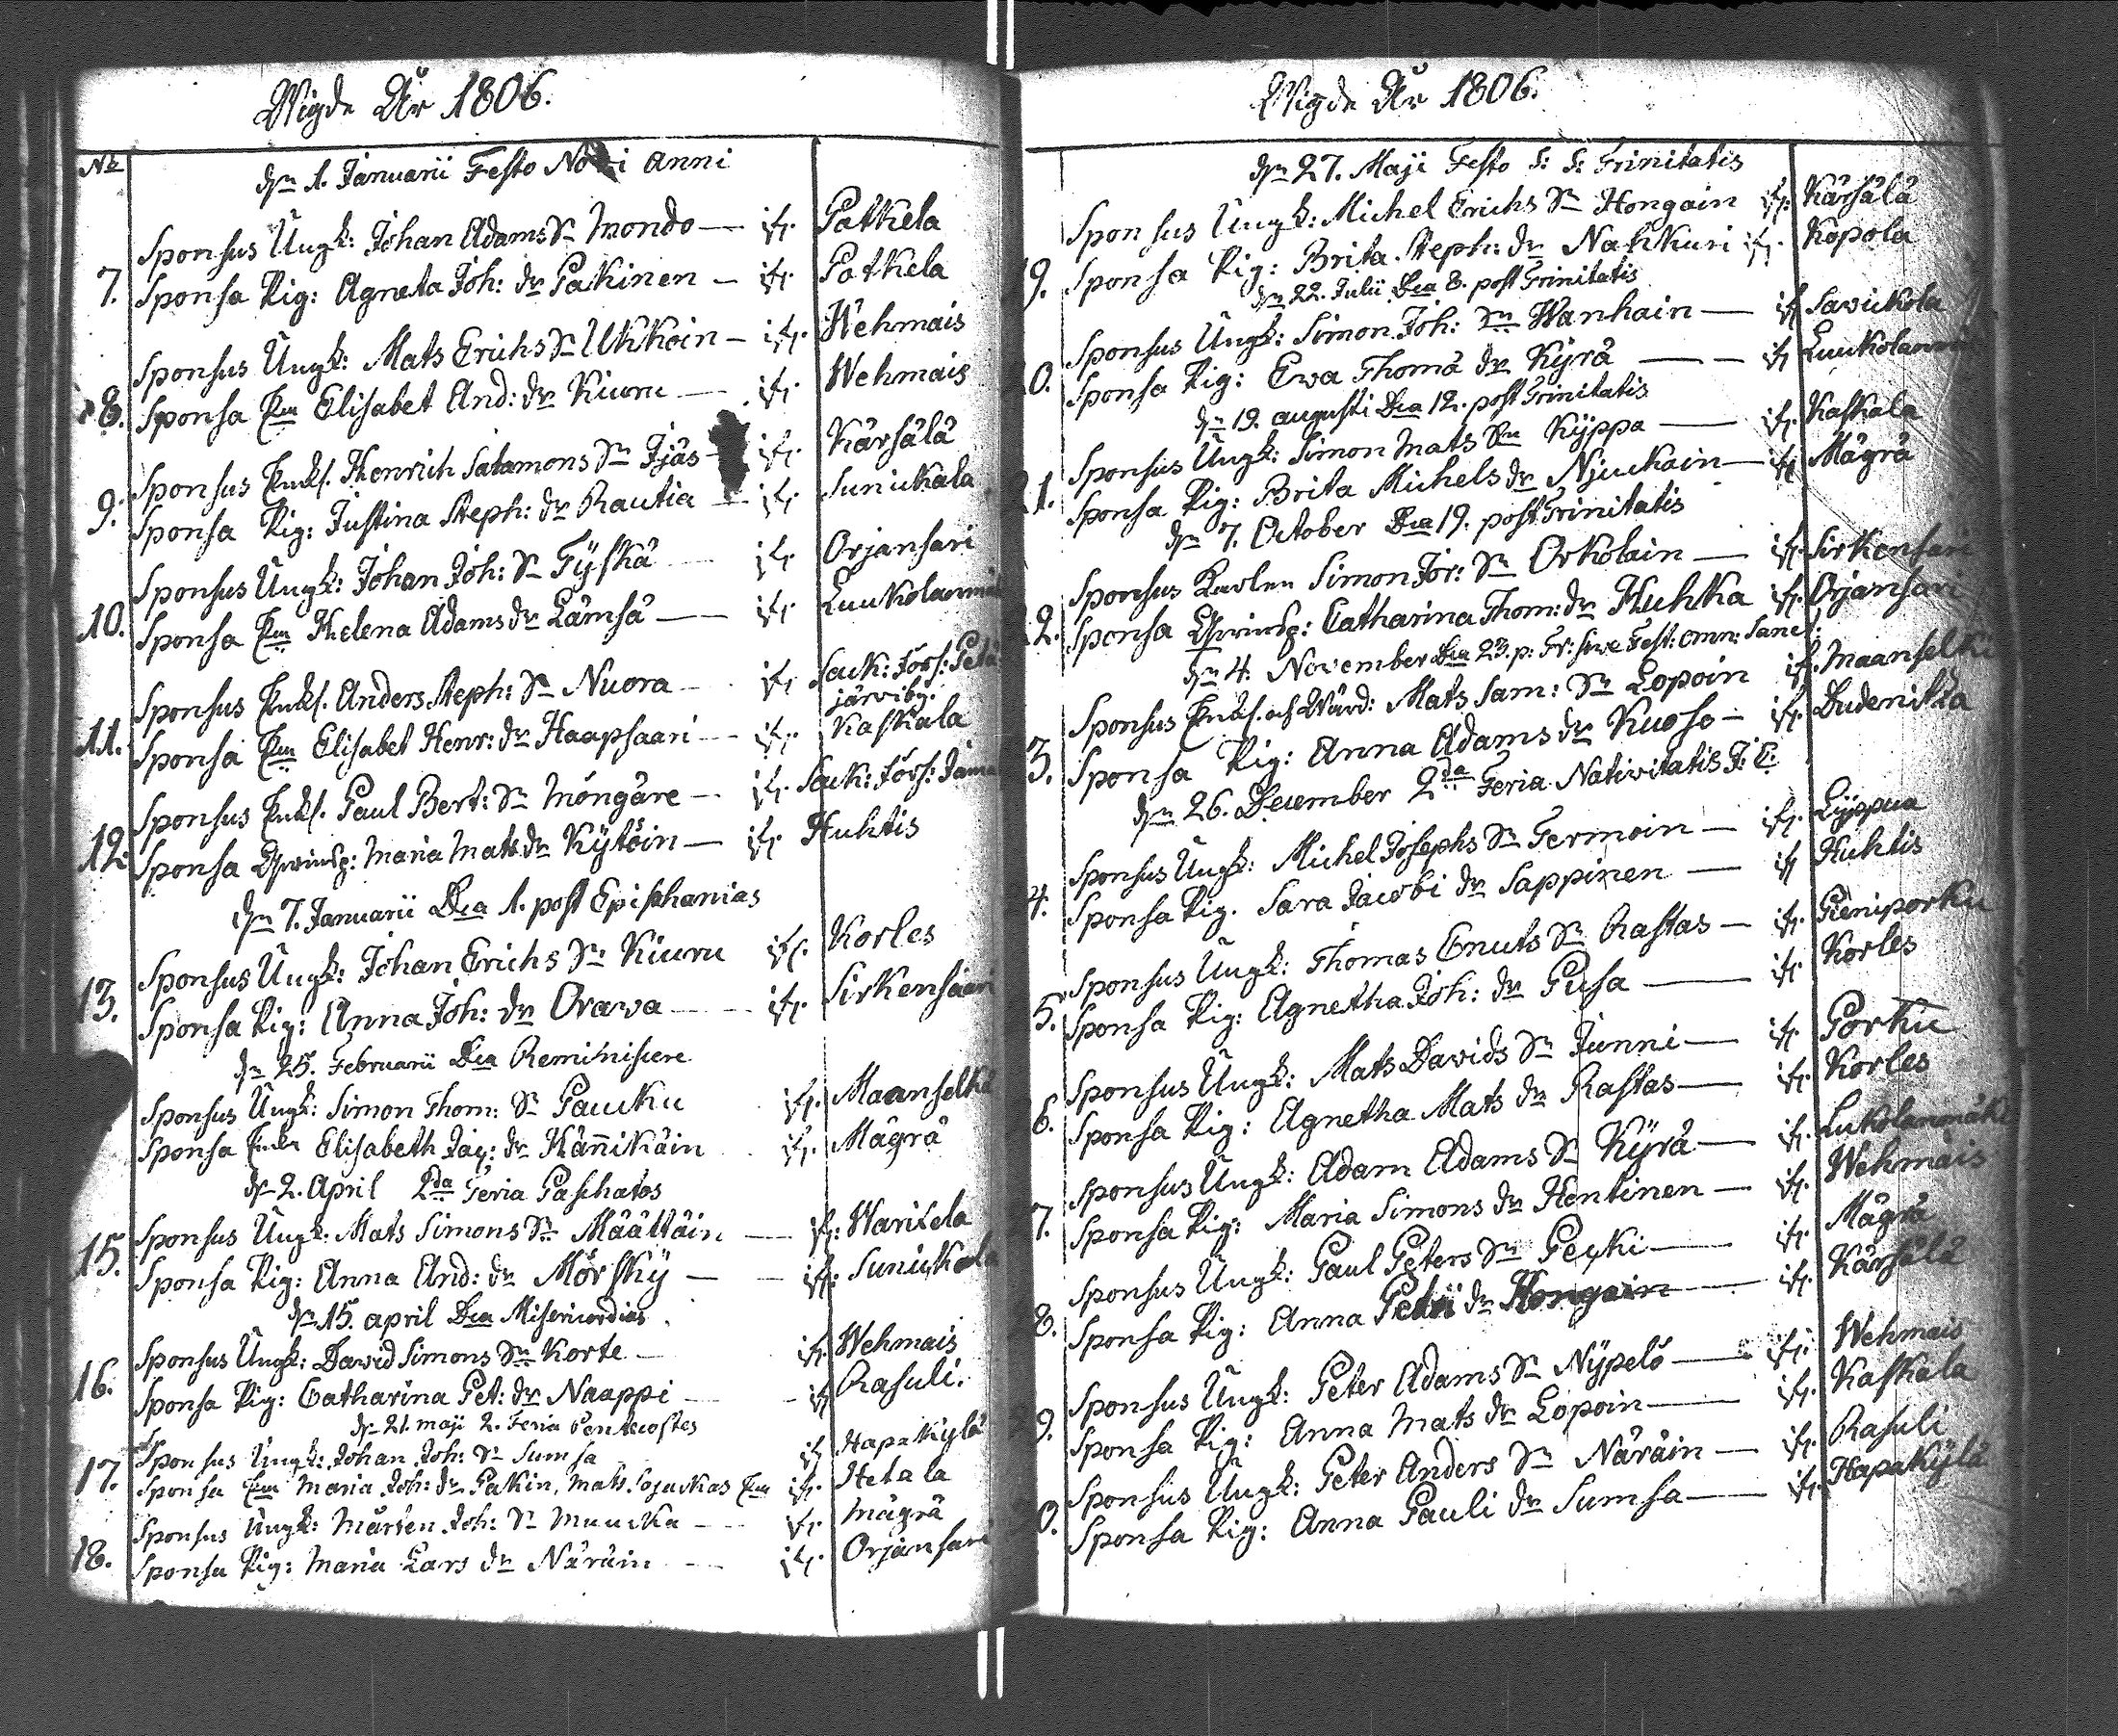 Wigde År 1806.
No
d. 1. Januarii Festo Novi anni
Sponsus Ungk: Johan Adams Sn Mondo — ifr. Patkela
7. Sponsa Pig: Agneta Joh: dr Pakinen — ifr. Patkela
Sponsus Ungk: Mats Erichs Sn Ukkoin — ifr. Wehmais
8. Sponsa Enk: Elisabet And: dr Kiuru — ifr. Wehmais
Sponsus Enkl. Henrich Salamons Sn Ijäs ifr. Kärsälä
9. Sponsa Pig: Justina Steph: dr Rautia — ifr. Suniukala
Sponsus Ungk: Johan Joh: Sn Tyskä — ifr. Orjansari
10. Sponsa Enk: Helena Adams dr Lämsä — ifr. Luukolanmäki
Sponsus Enkl. Anders Steph: Sn Nuora — ifr. Jack: Förs: Petä
järviby.
11. Sponsa Enk: Elisabet Henr: dr Haapsaari — ifr. Kaskala
Sponsus Enkl. Paul Bert: Sn Möngäre — ifr. Jack: Förs:
12. Sponsa Maria Mats dr Kytöin — ifr. Huhtis
d. 7. Januarii Dca 1. post Epiphanias
Sponsus Ungk: Johan Erichs Sn Kiuru ifr. Korles
13. Sponsa Pig: Anna Joh: dr Orawa — ifr. Sirkensaari
d. 25. Februarii Dca Reminiscere
Sponsus Ungk: Simon Thom: Sn Paucku ifr. Maanselkä
Sponsa Enka Elisabeth dr Hännikäin ifr. Mägrä
d. 2. April 2da Feria Paschatos
Sponsus Ungk: Mats Simons Sn Määttäin — ifr: Waritela
15. Sponsa Pig: Anna And: dr Mörsky — ifr: Suniukala
d. 15. april Dca Misericordias
Sponsus Ungk: David Simons Sn Korte — ifr. Wehmais
16. Sponsa Pig: Catharina Pet: dr Naappi — ifr Rasuli.
d. 21. maji 2. Feria Pentecostes
Sponsus Ungk: Johan Joh: Sn Sumsa ifr Hapakylä
17. Sponsa Enk: Maria Joh: dr Pakin, Mats Sojuckas Enk: ifr. Hetala
Sponsus Ungk: Mårten Joh: Sn Muucka — ifr. Mägrä
18. Sponsa Pig: Maria Lars dr Näräin — ifr. Orjansari
Wigde År 1806.
d. 27. Maji Festo S: S: Trinitatis
Sponsus Ungk: Michel Erichs Sn Hongain ifr. Kärsälä
9. Sponsa Pig: Brita Steph: dr Nahkuri ifr. Kopola
d. 22. Julii Dca 8. post Trinitatis
Sponsus Ungk: Simon Joh: Sn Wanhain — ifr Saviukola
0. Sponsa Pig: Ewa Thoma dr Kyrä — ifr Luukolanmäki
d. 19. augusti Dca 12. post Trinitatis
Sponsus Ungk: Simon Mats Sn Kyppa — ifr. Kaskala
1. Sponsa Pig: Brita Michels dr Njuckain — ifr Mägrä
d. 7. October Dca 19. post Trinitatis
Sponsus Karlen Simon Jör: Sn Orkolain — ifr. Sirkensari
2. Sponsa Catharina Thom: dr Huhka ifr. Orjansari
d. 4. November Dca 23. p: Tr: sive Fest: Omn: Sanct:
Sponsus Enkl. Mats Sam: Sn Lopoin ifr. Maanselkä
3. Sponsa Pig: Anna Adams dr Kuoso — ifr. Dudenitza
d. 26. December 2da Feria Nativitatis J: C:
Sponsus Ungk: Michel Josephs Sn Termoin — ifr. Lyppua
4. Sponsa Pig. Sara Jacobi dr Sappinen — ifr Huhtis
Sponsus Ungk: Thomas Cnuts Sn Rastas — ifr. Pieniporku
5. Sponsa Pig: Agnetha Joh: dr Pusa — ifr. Korles
Sponsus Ungk: Mats Davids Sn Junni — ifr. Porku
6. Sponsa Pig: Agnetha Mats dr Rastas — ifr. Korles
Sponsus Ungk: Adam Adams Sn Kyrä — ifr. Lukolanmäki
7. Sponsa Pig: Maria Simons dr Hentinen — ifr. Wehmais
Sponsus Ungk: Paul Peters Sn Peyki — ifr. Mägrä
8. Sponsa Pig: Anna Petri dr Hongain — ifr. Kärsälä
Sponsus Ungk: Peter Adams Sn Nypelö — ifr. Wehmais
9. Sponsa Pig: Anna Mats dr Lopoin — ifr. Kaskala
Sponsus Ungk: Peter Anders Sn Näräin — ifr. Rasuli
0. Sponsa Pig: Anna Pauli dr Sumsa — ifr. Hapakylä